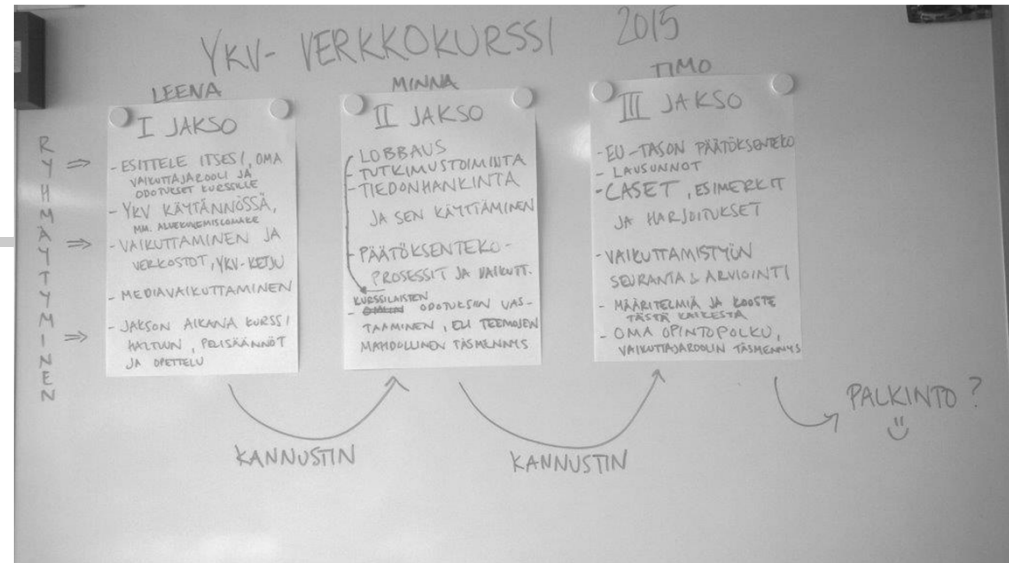 YKV- VERKKOKURSSI 2015
RYHMÄYTYMINEN
LEENA
I JAKSO
- ESITTELE ITSESI, OMA
VAIKUTTAJAROOLI JA
ODOTUKSET KURSSILLE
- YKV KÄYTÄNNÖSSÄ,
MM.
- VAIKUTTAMINEN JA
VERKOSTOT, YKV-KETJU
- MEDIAVAIKUTTAMINEN
- JAKSON AIKANA KURSSI
HALTUUN, PELISÄÄNNÖT
JA OPETTELU
MINNA
II JAKSO
LOBBAUS
- TUTKIMUSTOIMINTA
- TIEDONHANKINTA
JA SEN KÄYTTÄMINEN
- PÄÄTÖKSENTEKO-
PROSESSIT JA VAIKUTT.
KURSSILAISTEN
- ODOTUKSIIN VAS-
TAAMINEN, ELI TEEMOJEN
MAHDOLLINEN TÄSMENNYS
TIMO
III JAKSO
- EU-TASON PÄÄTÖKSENTEKO
- LAUSUNNOT
- CASET, ESIMERKIT
JA HARJOITUKSET
- VAIKUTTAMISTYÖN
SEURANTA & ARVIOINTI
- MÄÄRITELMIÄ JA KOOSTE
TÄSTÄ KAIKESTA
- OMA OPINTOPOLKU,
VAIKUTTAJAROOLIN TÄSMENNYS
KANNUSTIN
KANNUSTIN
PALKINTO?